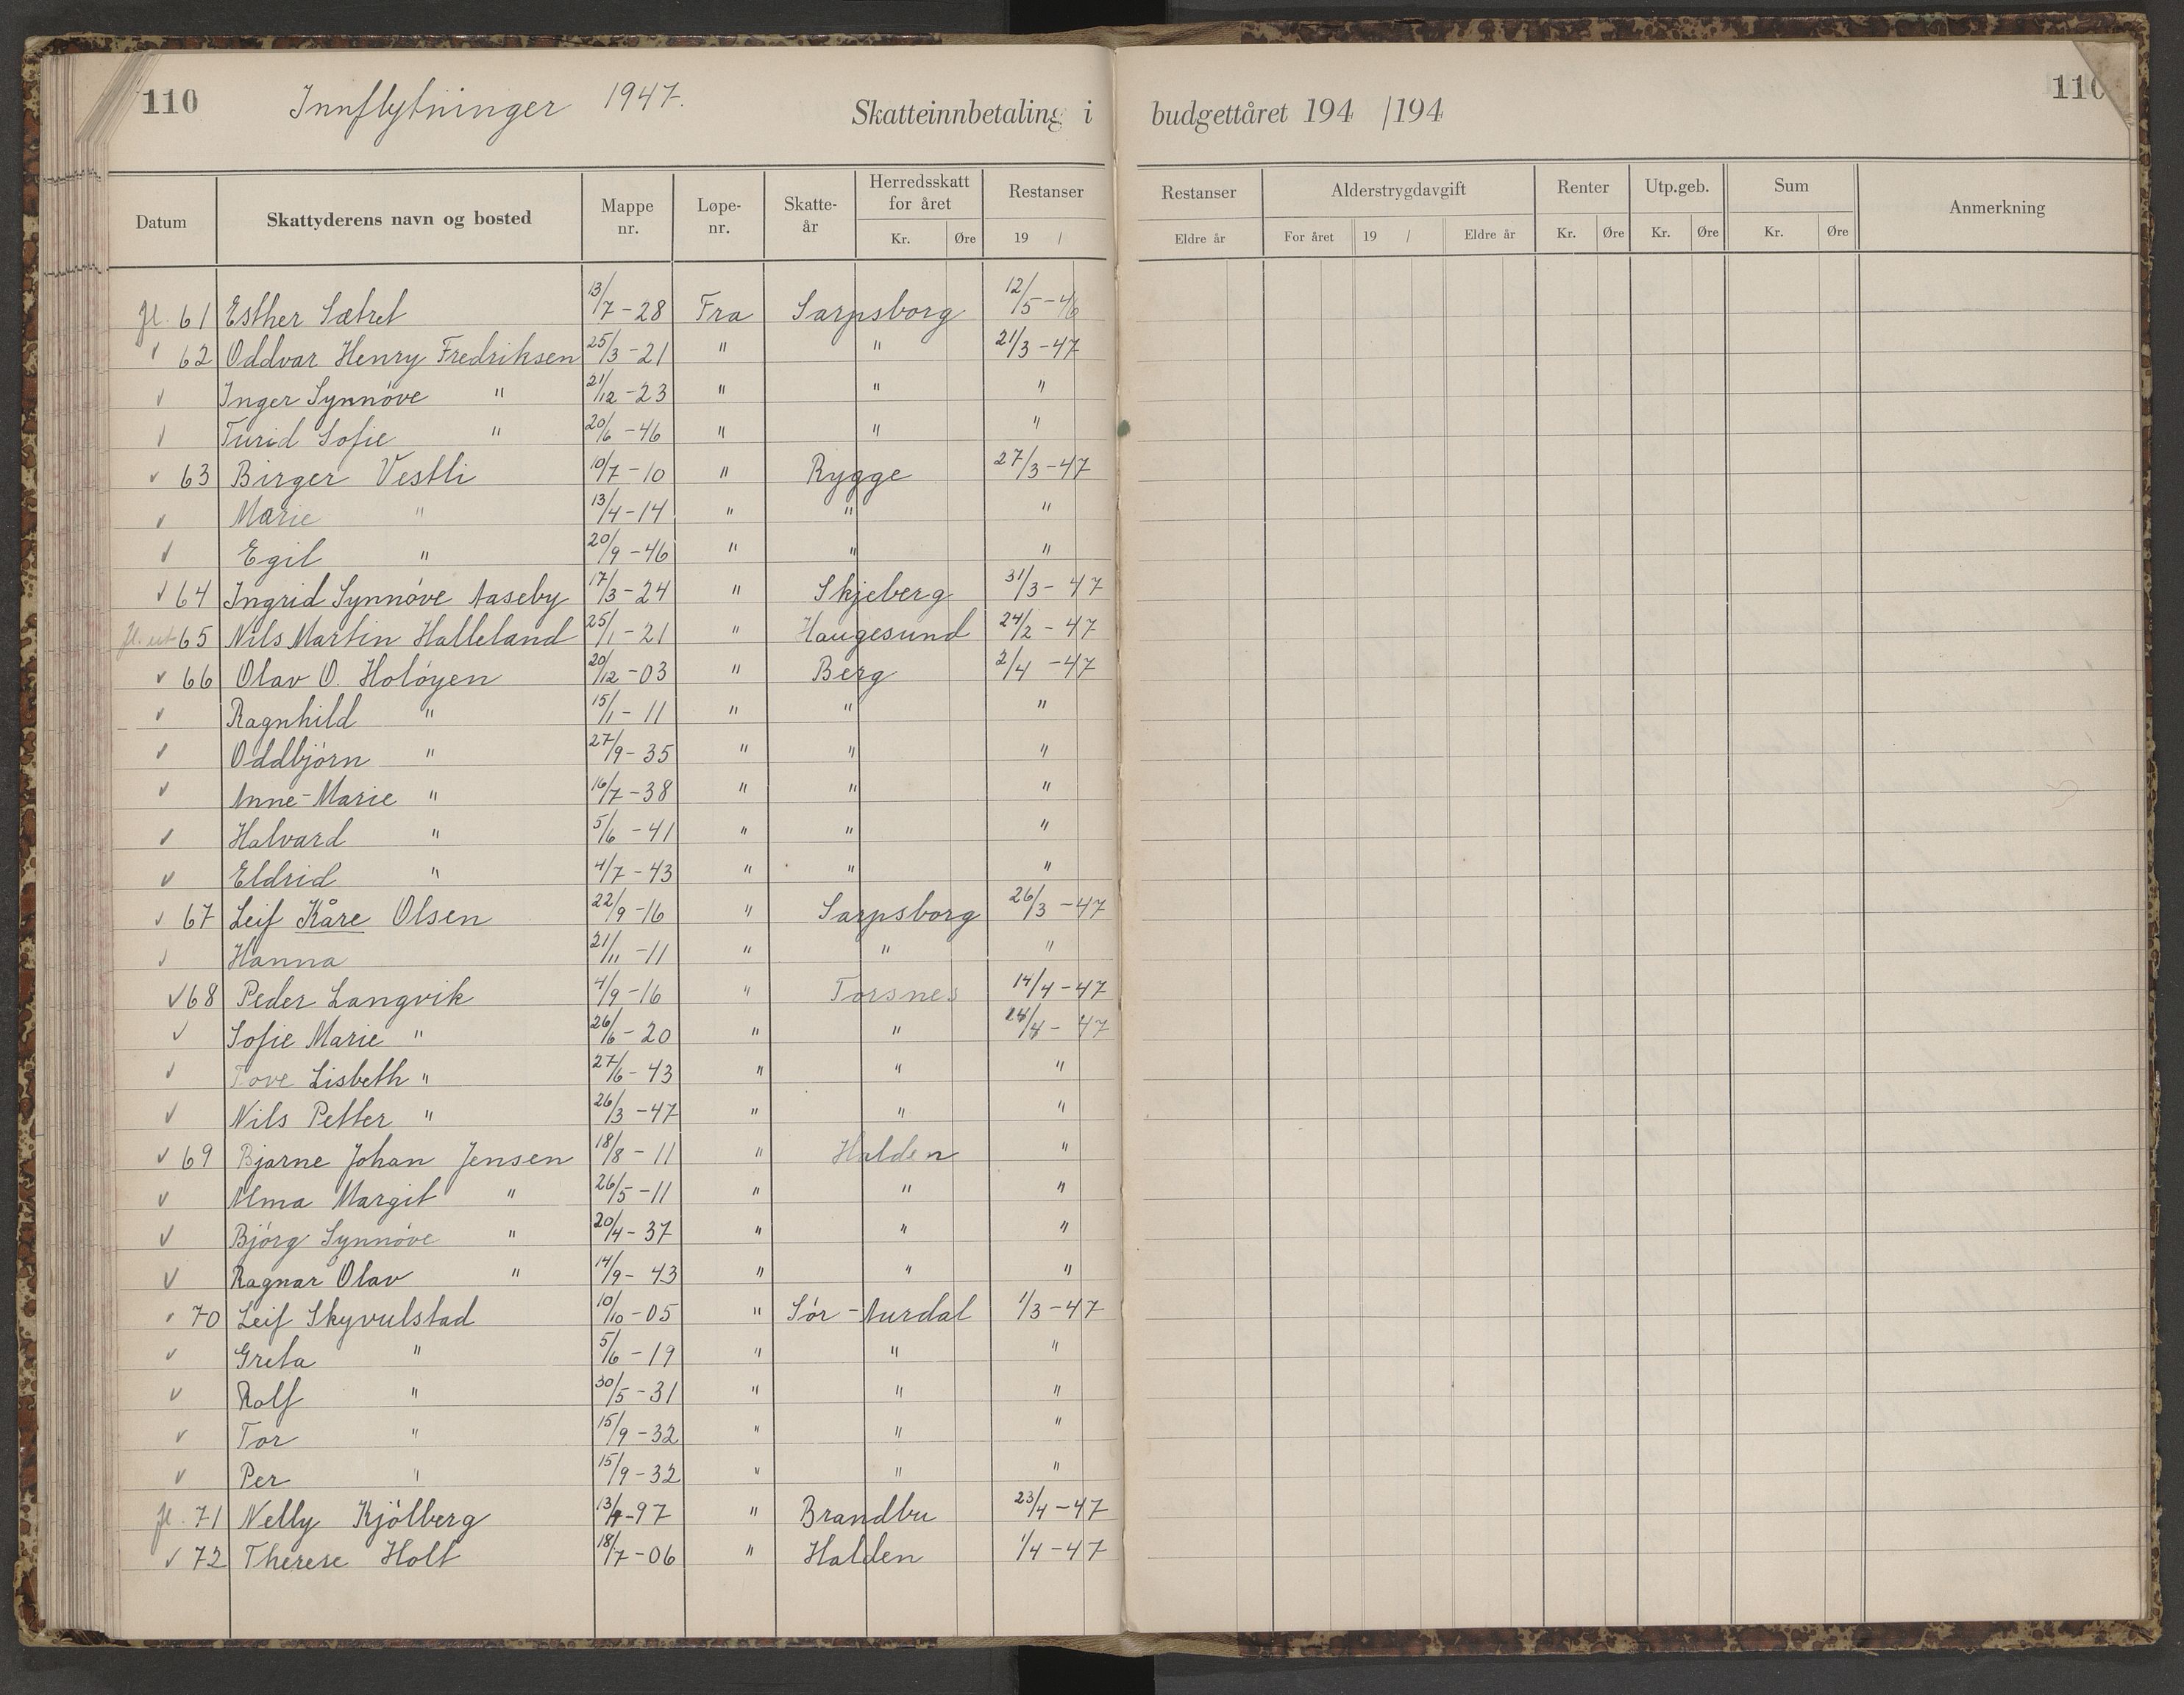 110 Innflytninger 1947. Skatteinnbetaling i budgettåret 194 /194 110
Datum Skattyderens navn og bosted Mappe nr. Løpe-nr. Skatte-år Herredsskatt for året Kr. Øre Restanser 19 / Restanser Eldre år Alderstrygdavgift For året 19 / Eldre år Renter Kr. Øre Utp.geb. Kr. Øre Sum Kr. Øre Anmerkning
fl. 61 Esther Sætret 13/7-28 Fra Sarpsborg 12/5-46
✓ 62 Oddvar Henry Fredriksen 25/3-21 " " 21/3-47
✓ Inger Synnöve " 21/12-23 " " "
✓ Turid Sofie " 20/6-46 " " "
✓ 63 Birger Vestli 10/7-10 " Rygge 27/3-47
✓ Marie " 13/4-14 " " "
✓ Egil " 20/9-46 " " "
✓ 64 Ingrid Synnöve Aaseby 17/3-24 " Skjeberg 31/3-47
fl. ut 65 Nils Martin Halleland 25/1-21 " Haugesund 24/2-47
✓ 66 Olav O. Holöyen 20/12-03 " Berg 2/4-47
✓ Ragnhild " 15/1-11 " " "
✓ Oddbjörn " 27/9-35 " " "
✓ Anne-Marie " 16/7-38 " " "
✓ Halvard " 5/6-41 " " "
✓ Eldrid " 4/7-43 " " "
✓ 67 Leif Kåre Olsen 22/9-16 " Sarpsborg 26/3-47
✓ Hanna 21/11-11 " " "
✓ 68 Peder Langvik 4/9-16 " Torsnes 14/4-47
✓ Sofie Marie " 26/6-20 " " 24/4-47
✓ Tove Lisbeth " 27/6-43 " " "
✓ Nils Petter " 26/3-47 " " "
✓ 69 Bjarne Johan Jensen 18/8-11 " Halden "
✓ Alma Margit " 26/5-11 " " "
✓ Björg Synnöve " 20/4-37 " " "
✓ Ragnar Olav " 14/9-43 " " "
✓ 70 Leif Skyvulstad 10/10-05 " Sör-Aurdal 1/3-47
✓ Greta " 5/6-19 " " "
✓ Rolf " 30/5-31 " " "
✓ Tor " 15/9-32 " " "
✓ Per " 15/9-32 " " "
fl. 71 Nelly Kjölberg -97 " Brandbu 23/4-47
✓ 72 Therese Holt 18/7-06 " Halden 1/4-47